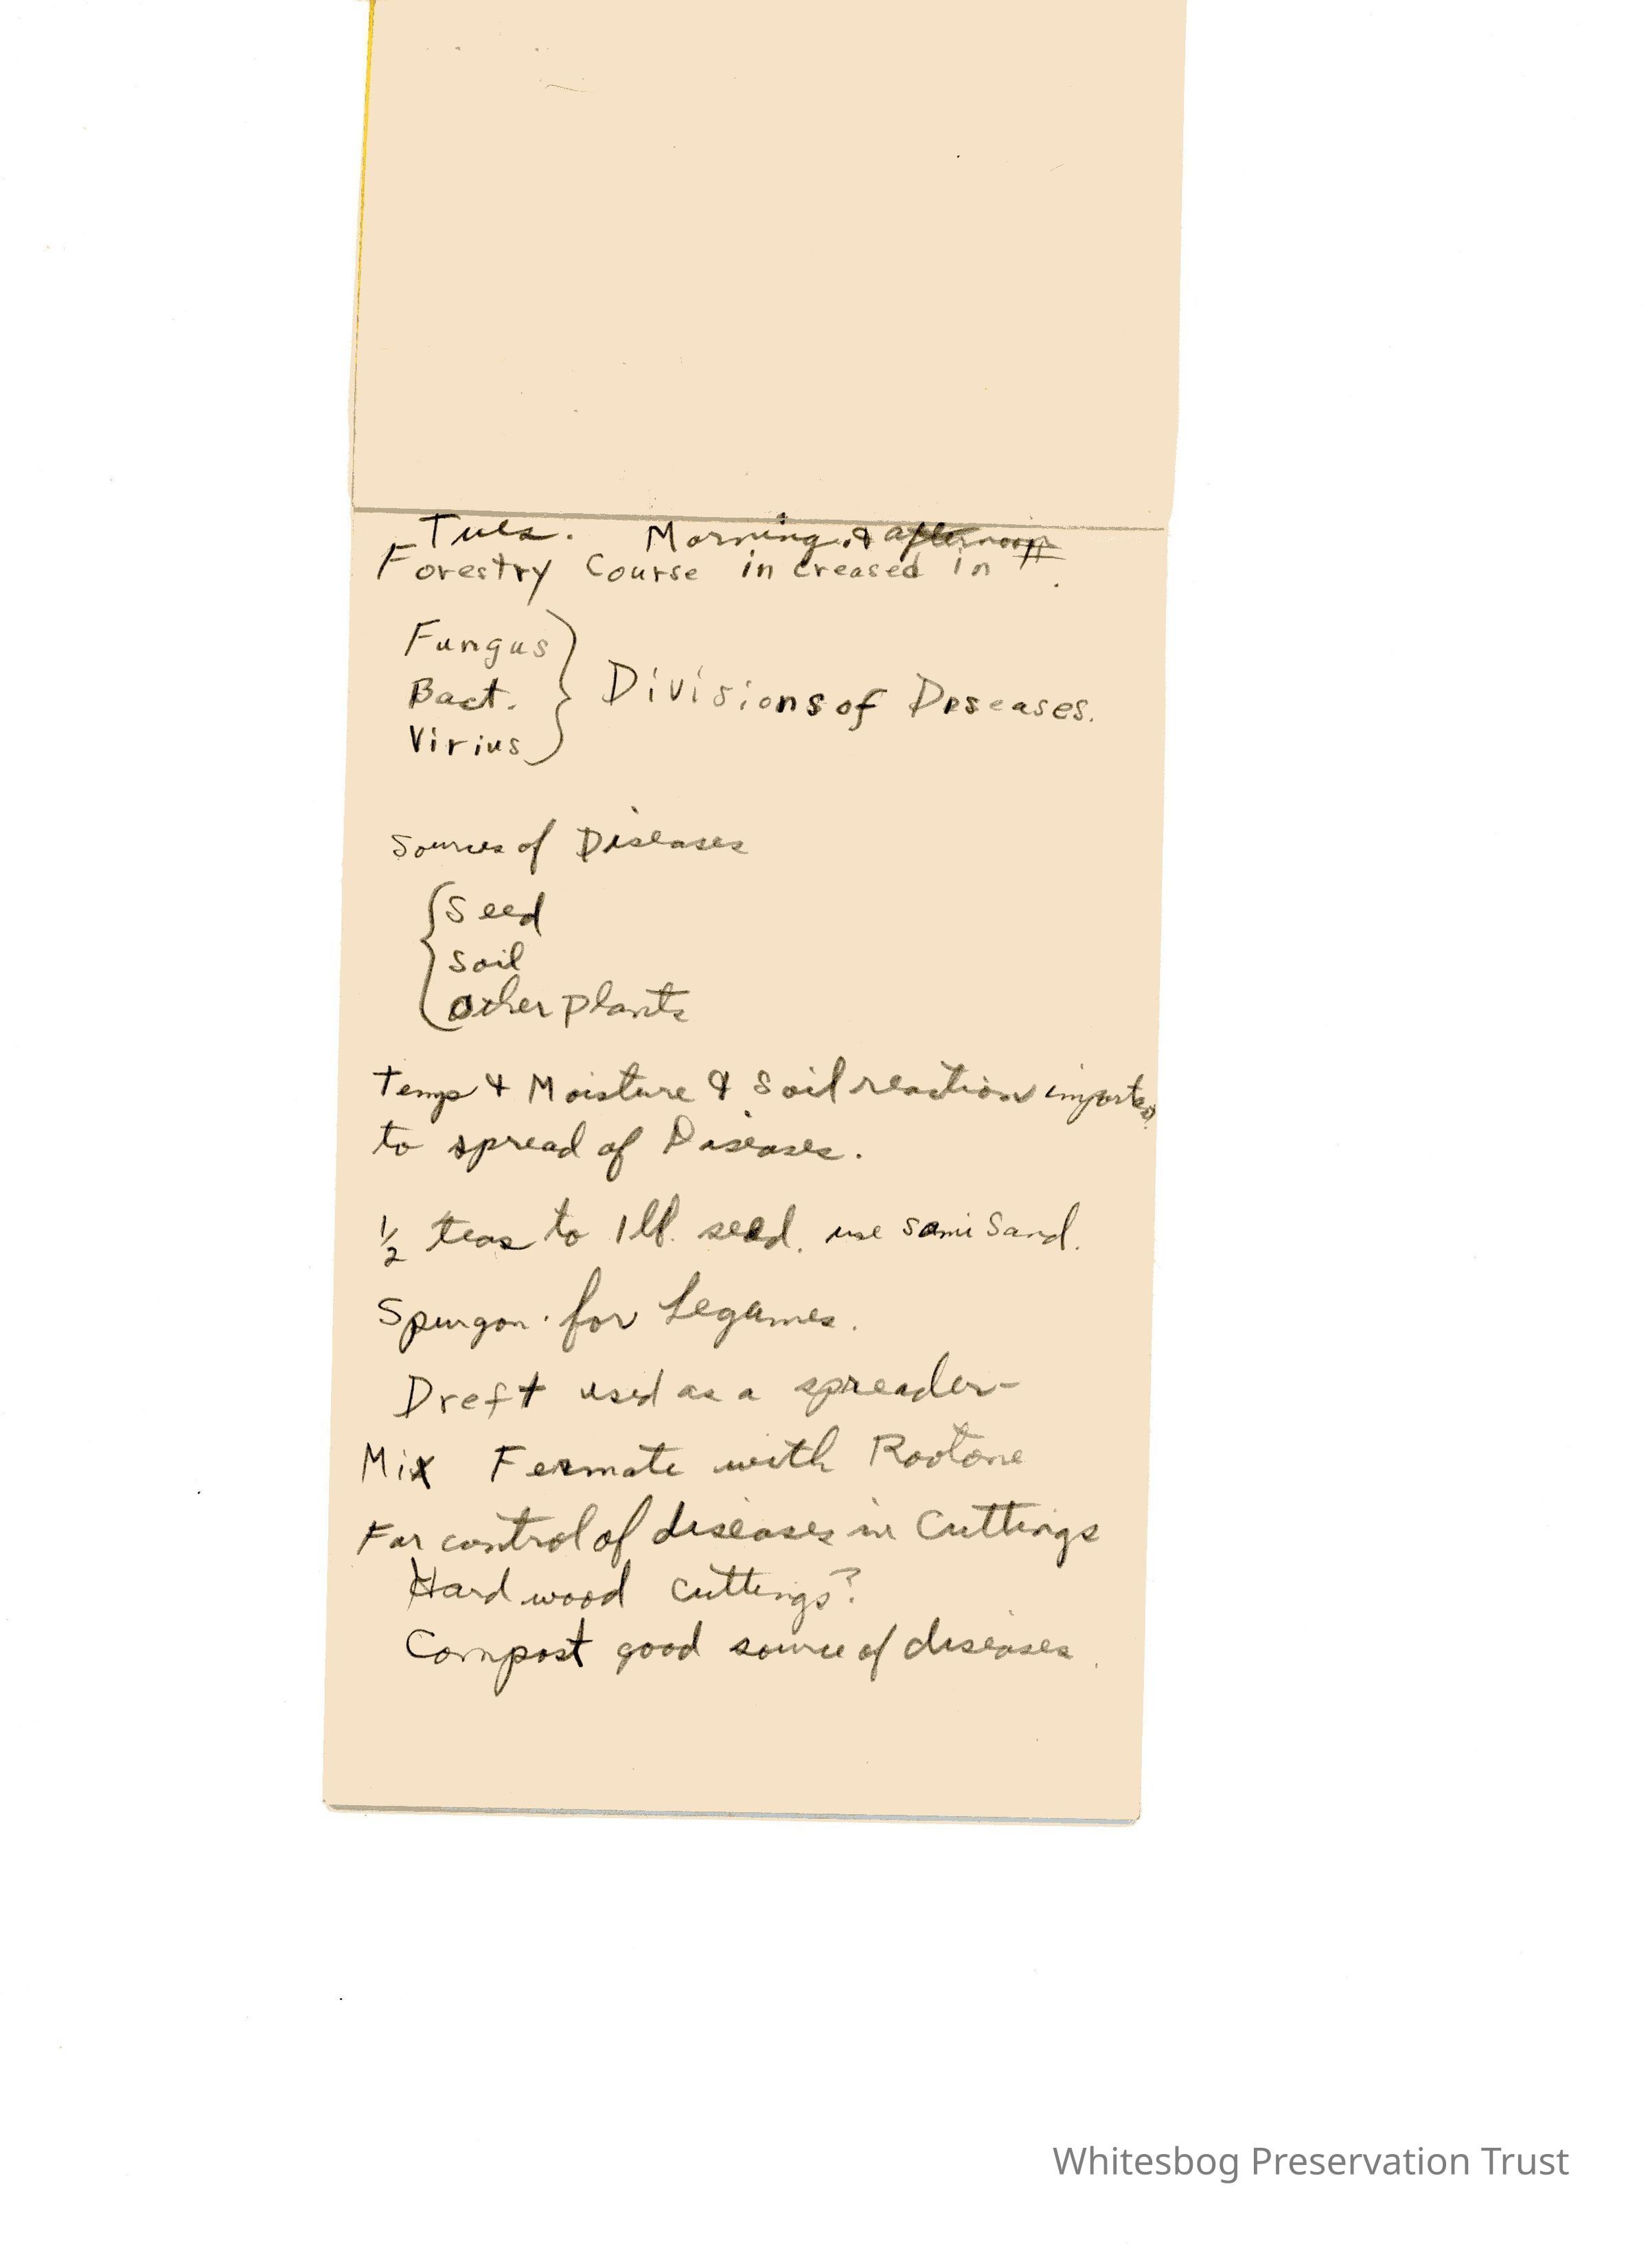 Tues. Morning & afternoon
Forestry Course in creased in #.
Fungus
Bact.
Virius
Divisions of Deseases.
Sources of Diseases
Seed
Soil
other plants
Temp & Moisture & Soil reaction
to spread of Diseases.
1/2 teas to 1 lb. seed. use Sand.
Spurgon. for Legumes.
Dreft used as a spreader-
Mix Fermate with Rootone
For control of diseases in Cuttings
Hard wood cuttings?
Compost good source of diseases.
Whitesbog Preservation Trust